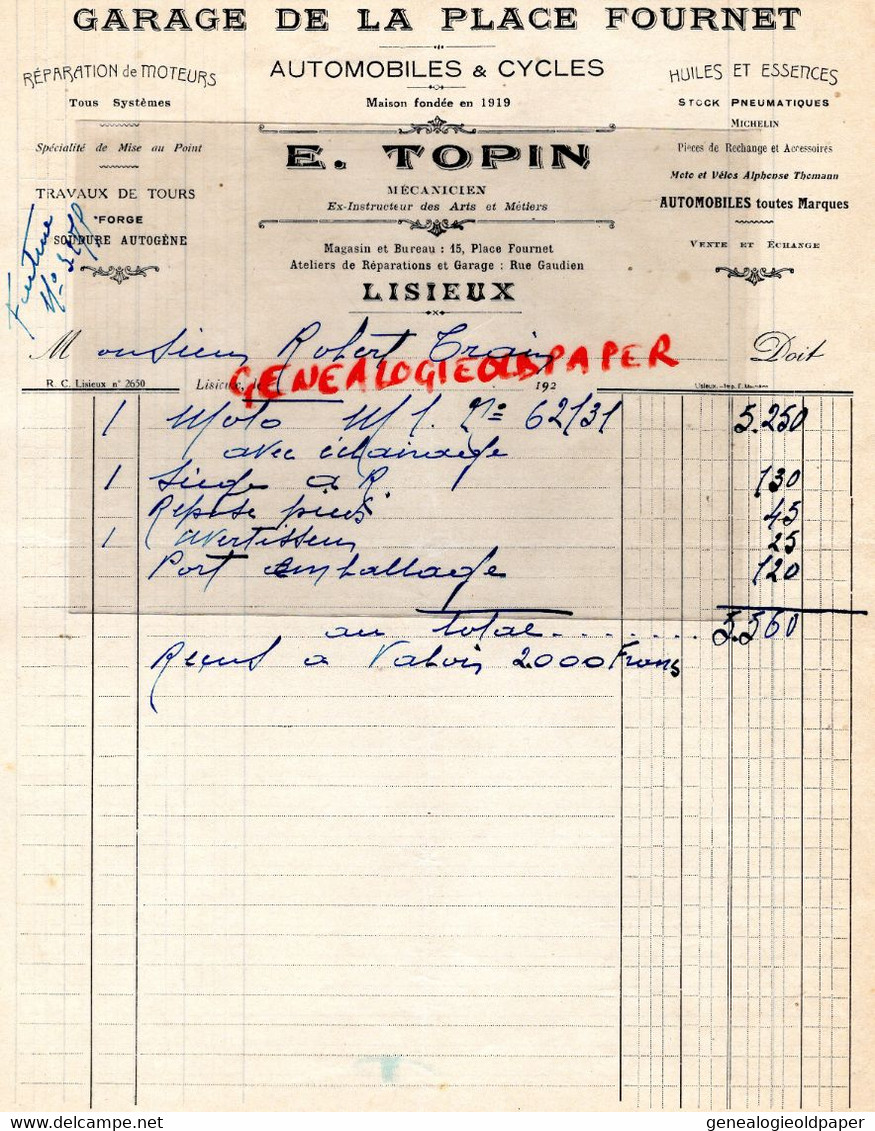 GARAGE DE LA PLACE FOURNET
AUTOMOBILES & CYCLES
Maison fondée en 1919
RÉPARATION de MOTEURS
Tous Systèmes
Spécialité de Mise au Point
TRAVAUX DE TOURS
FORGE
SOUDURE AUTOGÈNE
Facture
N°
E. TOPIN
MÉCANICIEN
Ex-Instructeur des Arts et Métiers
Magasin et Bureau : 15, Place Fournet
Ateliers de Réparations et Garage : Rue Gaudien
LISIEUX
HUILES ET ESSENCES
STOCK PNEUMATIQUES
MICHELIN
Pièces de Rechange et Accessoires
Moto et Vélos Alphonse Thomann
AUTOMOBILES toutes Marques
VENTE ET ÉCHANGE
Monsieur Robert Doit
GENEALOGIEOLDPAPER
R. C. Lisieux n° 2650 Lisieux, le 192
1 Moto M1. N° 62131 5.250
avec éclairage
1 Siège a R 130
Repose pieds 45
1 avertisseur 25
Port emballage 120
au total........ 5.560
Reçus a Valoir 2.000 Francs
delcampe.net
genealogieoldpaper